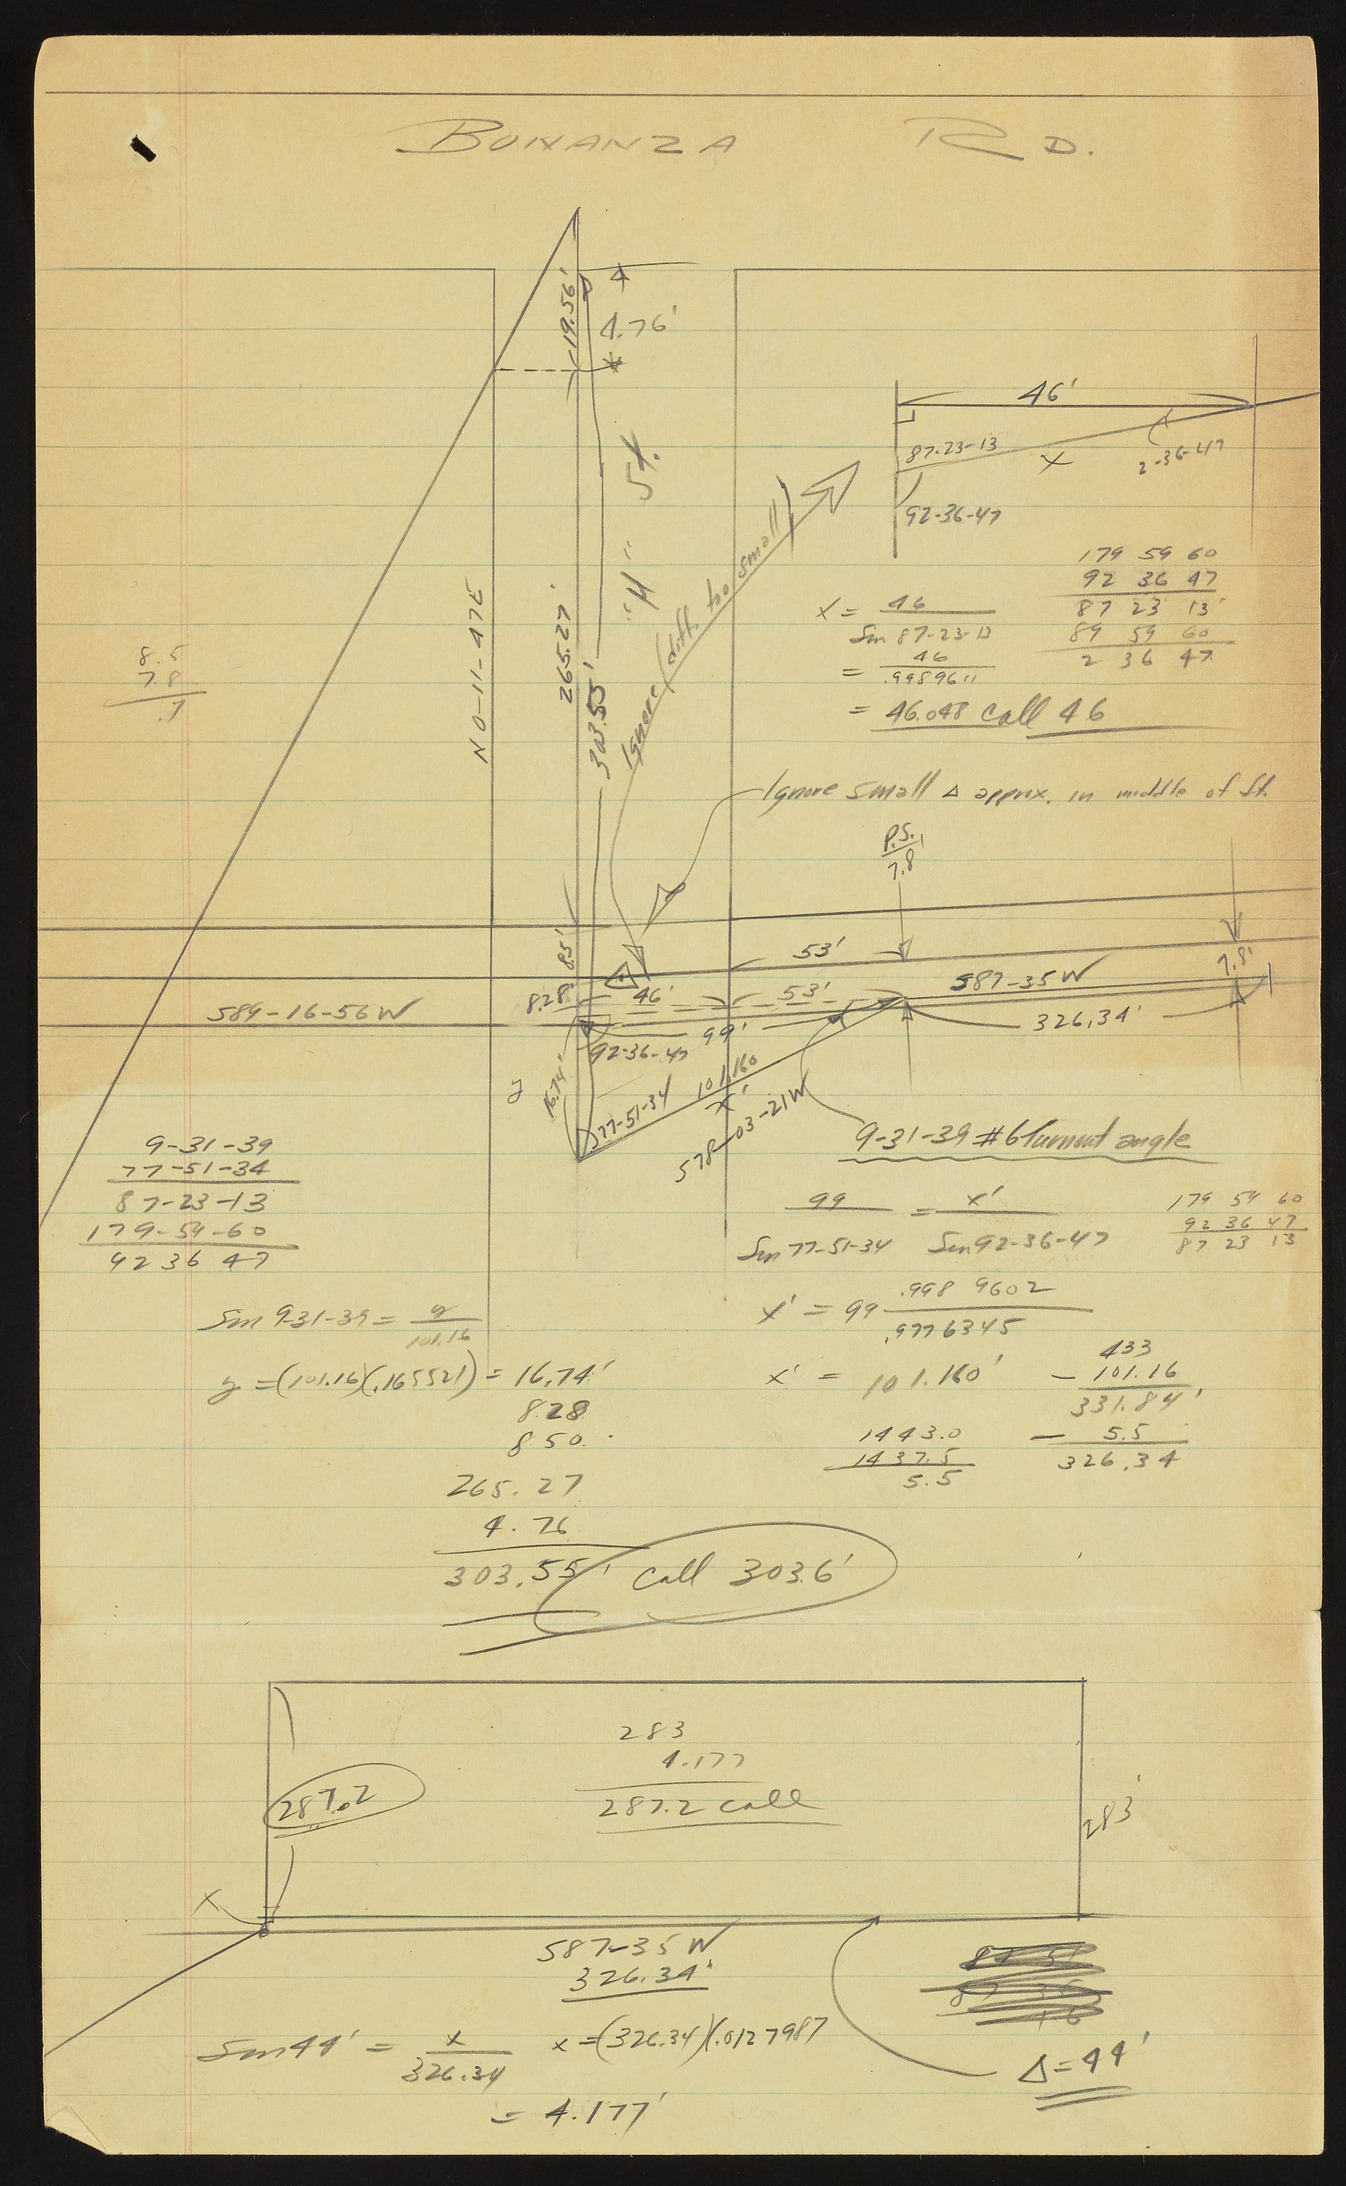 BONANZA RD.
19.56'
4.76'
"H" St.
N 0-11-47E
265.27'
303.55'
Ignore (diff. too small)
46'
87-23-13
X
2-36-47
92-36-47
179 59 60
92 36 47
87 23 13
89 59 60
2 36 47
X = 46
Sin 87-23-13
= 46
.9989611
= 46.048 call 46
8.5
7.8
.7
Ignore small Δ approx. in middle of St.
P.S.
7.8'
8.5'
53'
7.8'
S87-35W
326.34'
8.28'
46'
53'
S89-16-56W
99'
92-36-47
16.74'
y
77-51-34
101.160
X'
S78-03-21W
9-31-39 #6 Turnout angle
9-31-39
77-51-34
87-23-13
179-59-60
92 36 47
99 = X'
Sin 77-51-34 Sin 92-36-47
179 59 60
92 36 47
87 23 13
X' = 99 .998 9602
.9776345
X' = 101.160'
433
- 101.16
331.84'
- 5.5
326.34
1443.0
1437.5
5.5
Sin 9-31-39 = y
101.16
y = (101.16)(.165521) = 16.74'
8.28
8.50
265.27
4.76
303.55' call 303.6'
283
4.177
287.2 call
287.2
283'
X
S87-35W
326.34'
Δ = 44'
Sin 44' = x
326.34
x = (326.34)(.0127987
= 4.177'